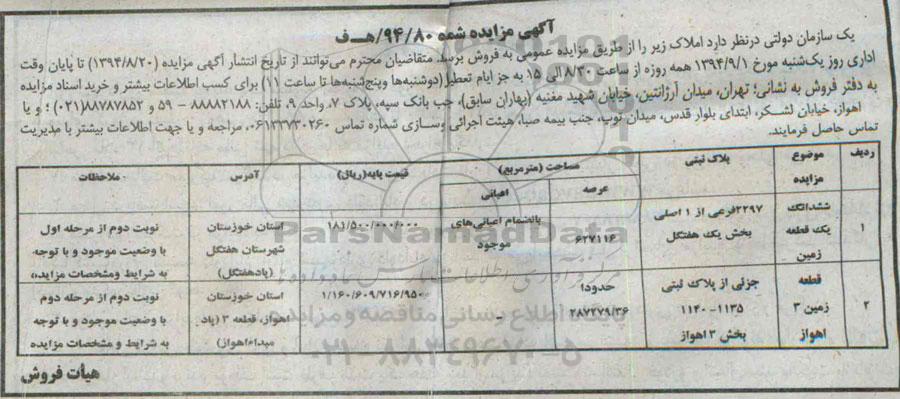 آگهی مزایده شمه ۹۴/۸۰/هـ ف
یک سازمان دولتی درنظر دارد املاک زیر را از طریق مزایده عمومی به فروش برساند. متقاضیان محترم می‌توانند از تاریخ انتشار آگهی مزایده (۱۳۹۴/۸/۲۰) تا پایان وقت
اداری روز یک‌شنبه مورخ ۱۳۹۴/۹/۱ همه روزه از ساعت ۸/۳۰ الی ۱۵ به جز ایام تعطیل (دوشنبه‌ها وپنج‌شنبه‌ها تا ساعت ۱۱) برای کسب اطلاعات بیشتر و خرید اسناد مزایده
به دفتر فروش به نشانی؛ تهران، میدان آرژانتین، خیابان شهید مغنیه (بهاران سابق)، جنب بانک سپه، پلاک ۷، واحد ۹، تلفن: ۸۸۸۸۲۱۸۸ - ۵۹ و ۸۸۷۸۷۸۵۲(۰۲۱) ؛ و یا
اهواز، خیابان لشـکر، ابتدای بلوار قدس، میدان توپ، جنب بیمه صبا، هیئت اجرائی وسـازی شماره تماس ۰۶۱۳۳۷۳۰۲۶۰، مراجعه و یا جهت اطلاعات بیشتر با مدیریت
تماس حاصل فرمایند.
ردیف موضوع مزایده پلاک ثبتی مساحت (مترمربع) عرصه اعیانی قیمت پایه(ریال) آدرس ملاحظات
۱ ششدانگ یک قطعه زمین ۲۲۹۷فرعی از ۱ اصلی بخش یک هفتگل ۶۲۷۱۱۶ بانضمام اعیانی‌های موجود ۱۸۱/۵۰۰/۰۰۰/۰۰۰ استان خوزستان شهرستان هفتگل (پادهفتگل) نوبت دوم از مرحله اول با وضعیت موجود و با توجه به شرایط ومشخصات مزایده
۲ قطعه زمین ۳ اهواز جزئی از پلاک ثبتی ۱۱۳۵-۱۱۴۰ بخش ۳ اهواز حدودا ۲۸۷۷۷۹/۳۶ - ۱/۱۶۰/۶۰۹/۷۱۶/۹۵۰ استان خوزستان اهواز، قطعه ۳ (پاد میداءاهواز) نوبت دوم از مرحله دوم با وضعیت موجود و با توجه به شرایط و مشخصات مزایده
هیأت فروش
ParsNamadData
پایگاه اطلاع رسانی مناقصه و مزایده
۰۲۱-۸۸۳۴۹۶۷۰-۵